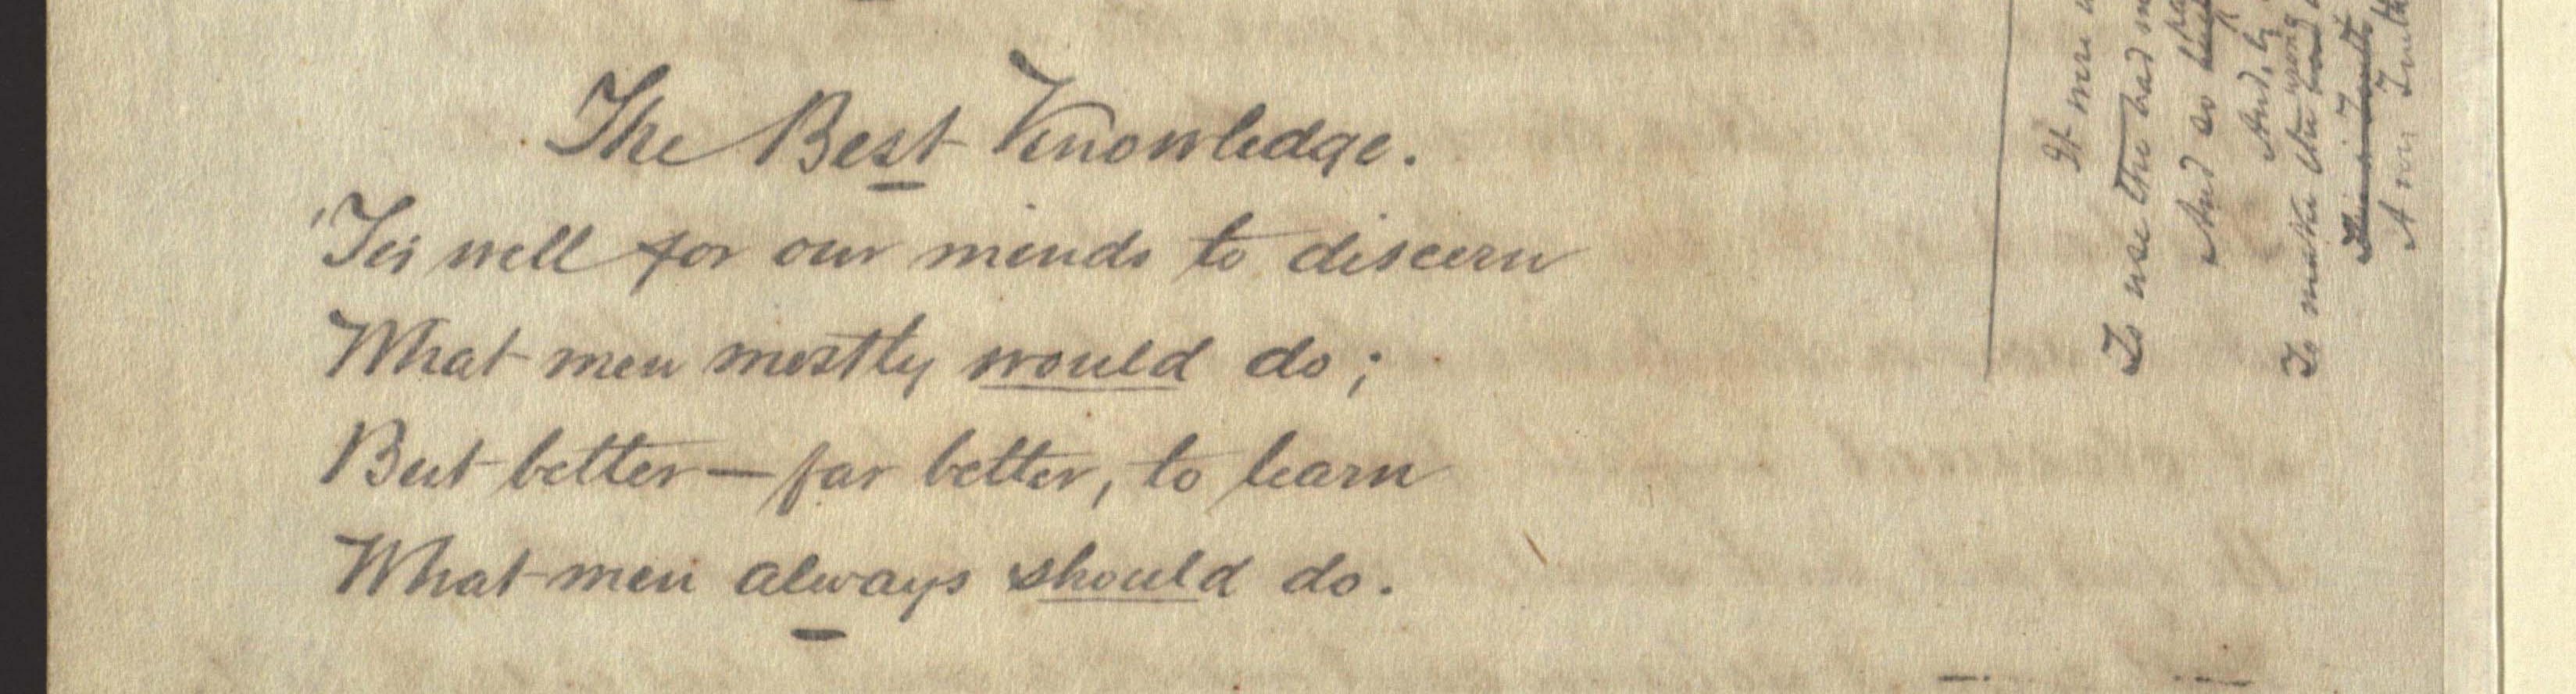 The Best Knowledge.
'Tis well for our minds to discern
What men mostly would do;
But better—far better, to learn
What men always should do.
It were
To use the bad
And so
And, by
wrong
To make the
A